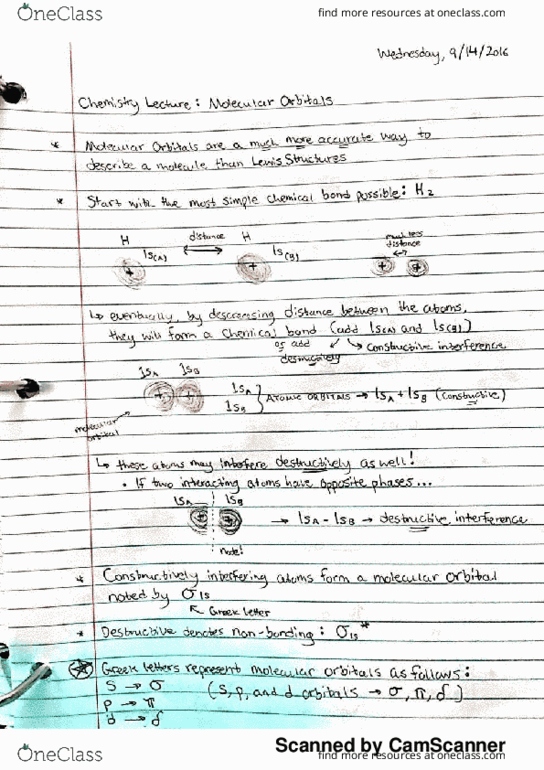 OneClass
find more resources at oneclass.com
Wednesday, 9/14/2016
Chemistry Lecture: Molecular Orbitals
* Molecular Orbitals are a much more accurate way to
describe a molecule than Lewis Structures
* Start with the most simple chemical bond possible: H2
H 1S(A) distance H 1S(B) much less distance
↳ eventually, by descreasing distance between the atoms,
they will form a chemical bond (add 1S(A) and 1S(B))
or add destructively ↳ constructive interference
1SA 1SB
1SA
1SB } ATOMIC ORBITALS → 1SA + 1SB (constructive)
molecular orbital
↳ these atoms may interfere destructively as well!
• If two interacting atoms have opposite phases...
1SA 1SB
→ 1SA - 1SB → destructive interference
node!
* Constructively interfering atoms form a molecular orbital
noted by σ1s
↖ Greek letter
* Destructive denotes non-bonding: σ1s*
Greek letters represent molecular orbitals as follows:
S → σ (s, p, and d orbitals → σ, π, δ)
p → π
d → δ
Scanned by CamScanner
OneClass
find more resources at oneclass.com